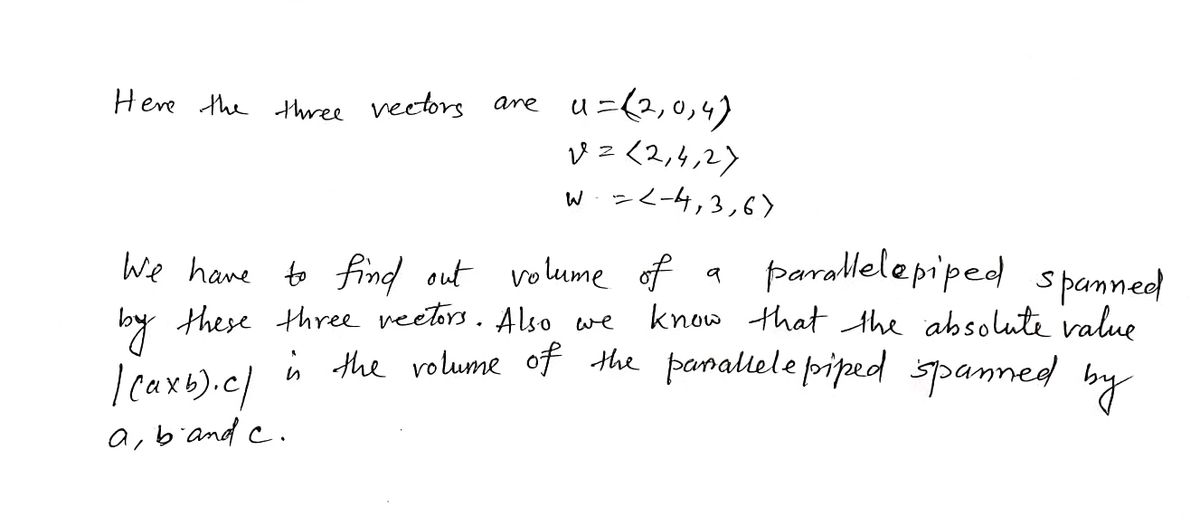 Here the three vectors are u=⟨2,0,4⟩
v = ⟨2,4,2⟩
w = ⟨-4,3,6⟩
We have to find out volume of a parallelepiped spanned
by these three vectors. Also we know that the absolute value
|(a×b).c| is the volume of the parallelepiped spanned by
a, b and c.